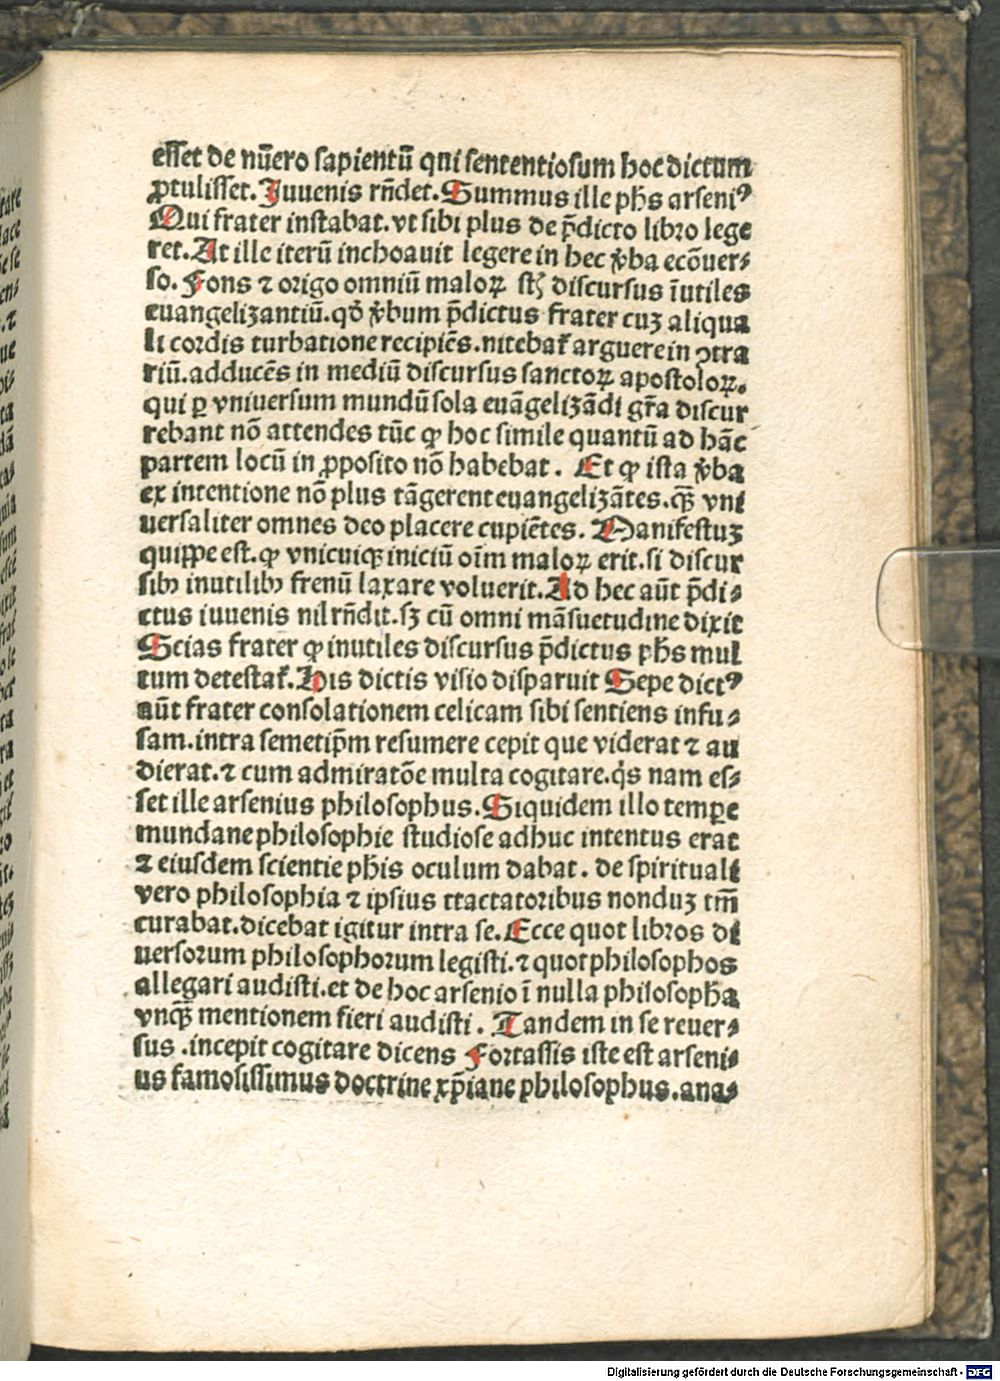 eſſet de nūero ſapientū qui ſententioſum hoc dictum
ꝓtuliſſet. Iuuenis rn̄det. Summus ille ph̄s arſeniꝰ
Qui frater inſtabat. vt ſibi plus de p̄dicto libro lege
ret. At ille iterū inchoauit legere in hec v̄ba ecōuer⸗
ſo. Fons ⁊ origo omniū maloꝝ ſt̄ diſcurſus īutiles
euangelizantiū. qd̄ v̄bum p̄dictus frater cuꝫ aliqua
li cordis turbatione recipiēs. nitebat̄ arguere in ꝯtra
riū. adducēs in mediū diſcurſus ſanctoꝝ apoſtoloꝝ.
qui ꝑ vniuerſum mundū ſola euāgelizādi gr̄a diſcur
rebant nō attendes tūc ꝙ hoc ſimile quantū ad hāc
partem locū in ꝓpoſito nō habebat. Et ꝙ iſta v̄ba
ex intentione nō plus tāgerent euangelizātes. qꝫ̄ vni
uerſaliter omnes deo placere cupiētes. Manifeſtuꝫ
quippe eſt. ꝙ vnicuiqꝫ iniciū oīm maloꝝ erit. ſi diſcur
ſibꝰ inutilibꝰ frenū laxare voluerit. Ad hec aūt p̄di⸗
ctus iuuenis nil rn̄dit. ſꝫ cū omni māſuetudine dixit
Scias frater ꝙ inutiles diſcurſus p̄dictus ph̄s mul
tum deteſtat̄. His dictis viſio diſparuit Sepe dictꝰ
aūt frater conſolationem celicam ſibi ſentiens infu⸗
ſam. intra ſemetip̄m reſumere cepit que viderat ⁊ au
dierat. ⁊ cum admiratōe multa cogitare. qͥs nam eſ⸗
ſet ille arſenius philoſophus. Siquidem illo tempe
mundane philoſophie ſtudioſe adhuc intentus erat
⁊ eiuſdem ſcientie ph̄is oculum dabat. de ſpirituali
vero philoſophia ⁊ ipſius ttactatoribus nonduꝫ tm̄
curabat. dicebat igitur intra ſe. Ecce quot libros di
uerſorum philoſophorum legiſti. ⁊ quot philoſophos
allegari audiſti. et de hoc arſenio ī nulla philoſoph̄a
vnqꝫ̄ mentionem fieri audiſti. Tandem in ſe reuer⸗
ſus. incepit cogitare dicens Fortaſſis iſte eſt arſeni⸗
us famoſiſſimus doctrine xp̄iane philoſophus. ana⸗
Digitalisierung gefördert durch die Deutsche Forschungsgemeinschaft - DFG